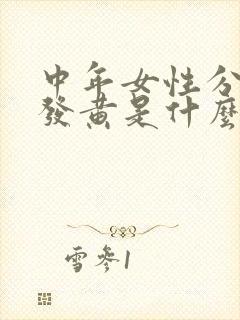 中年女性分
發黃是什麼
雪參1